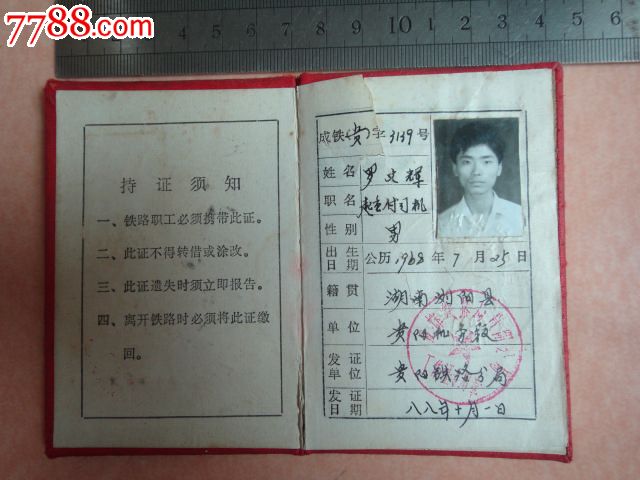 7788.com
5 6 7 8 9 10 1 2 3 4 5 6
持证须知
一、铁路职工必须携带此证。
二、此证不得转借或涂改。
三、此证遗失时须立即报告。
四、离开铁路时必须将此证缴
回。
成铁(贵)字3139号
姓名 罗文辉
职名 付司机
性别 男
出生日期 公历1968年7月25日
籍贯 湖南浏阳县
单位 贵阳机务段
发证单位 贵阳铁路分局
发证日期 八八年十月一日